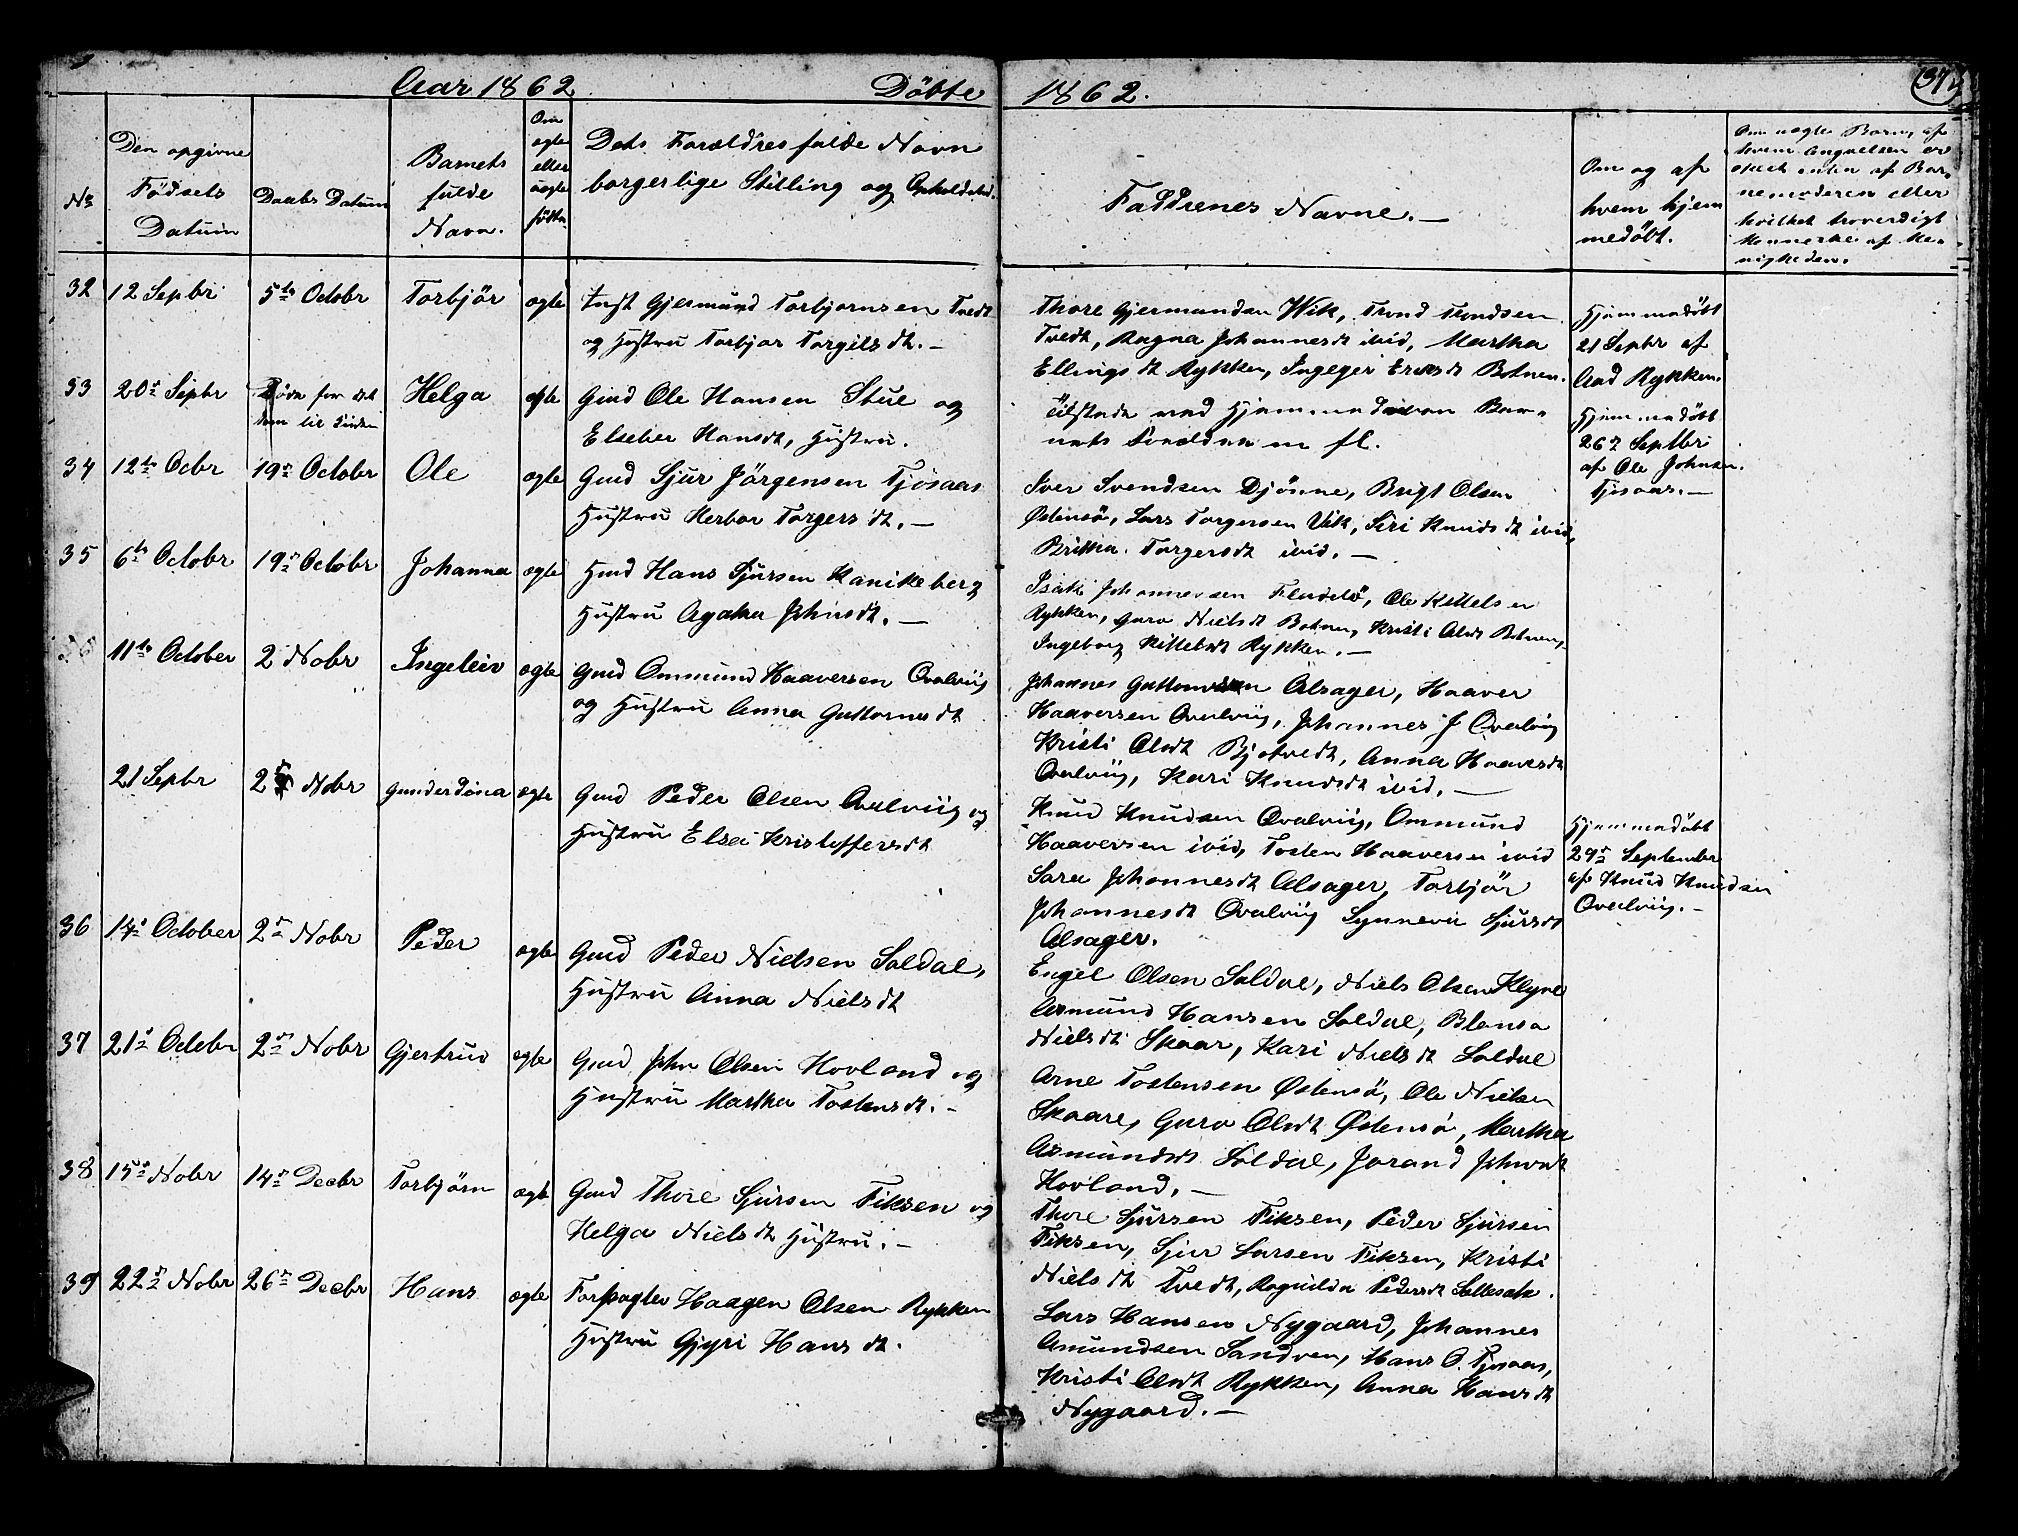 Aar 1862
Döbte
1862.
37
No
Den opgivne
Födsels
Datum
Daabs Datum
Barnets
fulde
Navn.
Om
ægte
eller
uægte
födte
Dets Forældres fulde Navn
borgerlige Stilling og Opholdsted.
Faddrenes Navne. —
Om og af
hvem hjem
medöbt.
Om uægte Barn, af
hvem Angivelsen er
skeet enten af Bar-
nemoderen eller
hvilket troverdigt
Menneske af Me-
nigheden.
32 12 Sepbr 5te Octobr Torbjör ægte Inst Gjermund Torbjornsen Tvedt
og Hustru Torbjor Torgilsdt. —
Thore Gjermundsen Wik, Trond Trondsen
Tvedt, Ragna Johannesdt ibid, Martha
Ellingsdt Rykken, Ingeger Ericsdt Botnen.
Hjemmedöbt
21 Sepbr af
Aad Rykken.
33 20de Sepbr Döde för det
kom til Kirken Helga ægte Gmd Ole Hansen Stue og
Elseber Hansdt, Hustru.
Tilstede ved Hjemmedaaben Bar-
nets Forældre m fl.
Hjemmedöbt
26de Septbr
af Ole Johnsen
Tjosaas. —
34 12te Ocbr 19de October Ole ægte Gmd Sjur Jörgensen Tjosaas
Hustru Herbor Torgersdt. —
Iver Svendsen Djönne, Brigt Olsen
Östensö, Lars Torgersen Vik, Siri Knudsdt ibid,
Britha Torgersdt ibid. —
35 6te Octobr 19de Octobr Johanna ægte Hmd Hans Sjursen Kanikeberg
Hustru Agatha Johnsdt. —
Isak Johannesen Flodetö, Ole Kittelsen
Rykken, Guro Nielsdt Botnen, Kristi Olsdt Botnen,
Ingeborg Kittelsdt Rykken. —
11te October 2 Nobr Ingeleiv ægte Gmd Ommund Haaversen Qvalviig
og Hustru Anna Guttormsdt
Johannes Guttormsen Alsager, Haaver
Haaversen Qvalviig, Johannes J Qvalviig
Kristi Olsdt Bjotvedt, Anna Haaversdt
Qvalviig, Kari Knudsdt ibid. —
21 Sepbr 2de Nobr Gunderdina ægte Gmd Peder Olsen Qvalviig og
Hustru Elsa Kristoffersdt
Knud Knudsen Qvalviig, Ommund
Haaversen ibid, Tosten Haaversen ibid
Sara Johannesdt Alsager, Torbjör
Johannesdt Qvalviig Synneva Sjursdt
Alsager.
Hjemmedöbt
29de September
af Knud Knudsen
Qvalviig. —
36 14de October 2de Nobr Peder ægte Gmd Peder Nielsen Soldal,
Hustru Anna Nielsdt
Engel Olsen Soldal, Niels Olsen Klyve
Asmund Hansen Soldal, Blansa
Nielsdt Skaar, Kari Nielsdt Soldal
37 21de Octobr 2de Nobr Gjertrud ægte Gmd John Olsen Hovland og
Hustru Martha Tostensdt. —
Arne Tostensen Östensö, Ole Nielsen
Skaare, Guro Olsdt Östensö, Martha
Asmundsdt Soldal, Jorand Johnsdt
Hovland. —
38 15de Nobr 14de Decbr Torbjörn ægte Gmd Thore Sjursen Fiksen og
Helga Nielsdt Hustru. —
Thore Sjursen Fiksen, Peder Sjursen
Fiksen, Sjur Larsen Fiksen, Kristi
Nielsdt Tvedt, Ragnilda Pedersdt
39 22de Nobr 26de Decbr Hans ægte Forpagter Haagen Olsen Rykken
Hustru Gjyri Hansdt.
Lars Hansen Nygaard, Johannes
Amundsen Sandven, Hans O. Tjosaas,
Kristi Olsdt Rykken, Anna Hansdt
Nygaard. —